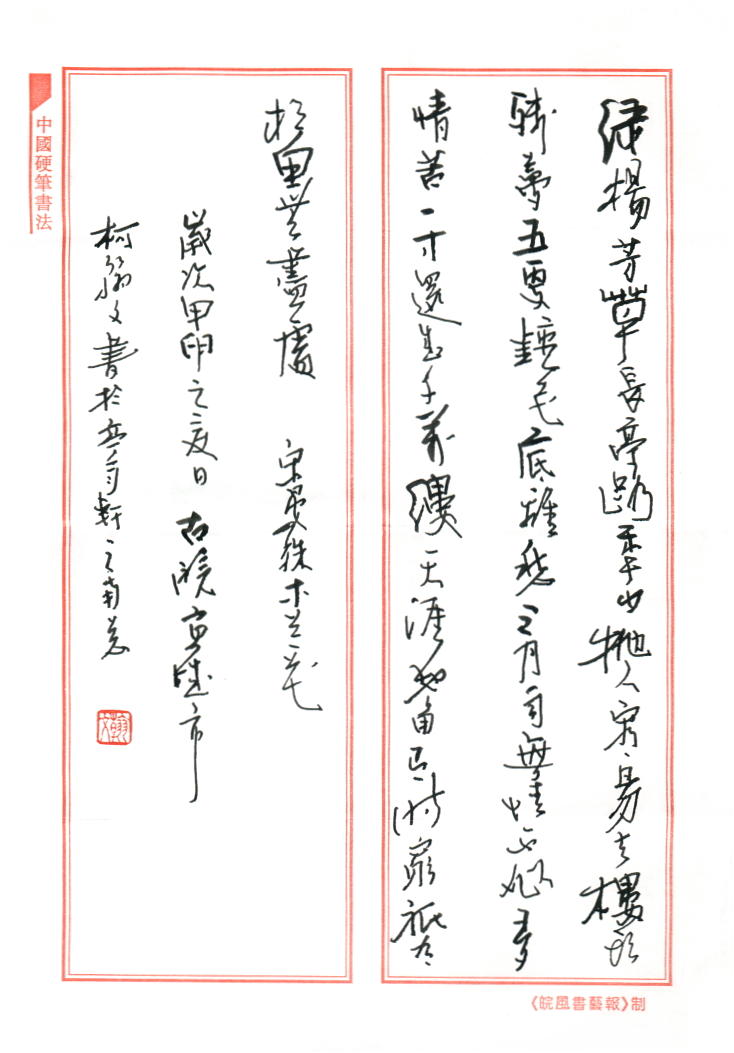 綠楊芳草長亭路年少拋人容易去樓頭
殘夢五更鐘花底離愁三月雨無情不似多
情苦一寸還成千萬縷天涯地角有時窮祇有
相思無盡處 宋晏殊木蘭花
歲次甲 之夏日 古皖宣城市
柯翰文書於 軒之南窗
中國硬筆書法
《皖風書藝報》制